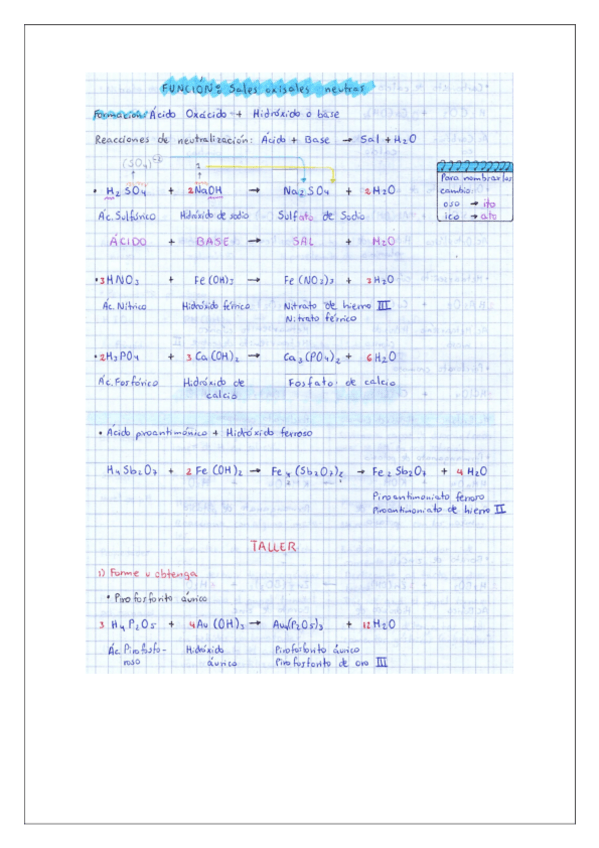 FUNCIÓN: Sales oxisales neutras
Formación: Ácido Oxácido + Hidróxido o base
Reacciones de neutralización: Ácido + Base → Sal + H2O
(SO4)
2
Para nombrarlas
cambio:
oso → ito
ico → ato
• H2 SO4 + 2NaOH → Na2 SO4 + 2H2O
Ác. Sulfúrico Hidróxido de sodio Sulfato de Sodio
ÁCIDO + BASE → SAL + H2O
•3HNO3 + Fe (OH)3 → Fe (NO3)3 + 3H2O
Ác. Nítrico Hidróxido férrico Nitrato de hierro III
Nitrato férrico
•2H3PO4 + 3Ca(OH)2 → Ca3(PO4)2 + 6H2O
Ác. Fosfórico Hidróxido de Fosfato de calcio
calcio
• Ácido piroantimónico + Hidróxido ferroso
H4Sb2O7 + 2Fe (OH)2 → Fe4 (Sb2O7)2 → Fe2 Sb2O7 + 4H2O
Piroantimoniato ferroso
Piroantimoniato de hierro II
TALLER
1) Forme u obtenga
• Pirofosfonito áurico
3 H4P2O5 + 4Au (OH)3 → Au4(P2O5)3 + 12H2O
Ác. Pirofosfo- Hidróxido Pirofosfonito áurico
roso áurico Pirofosfonito de oro III